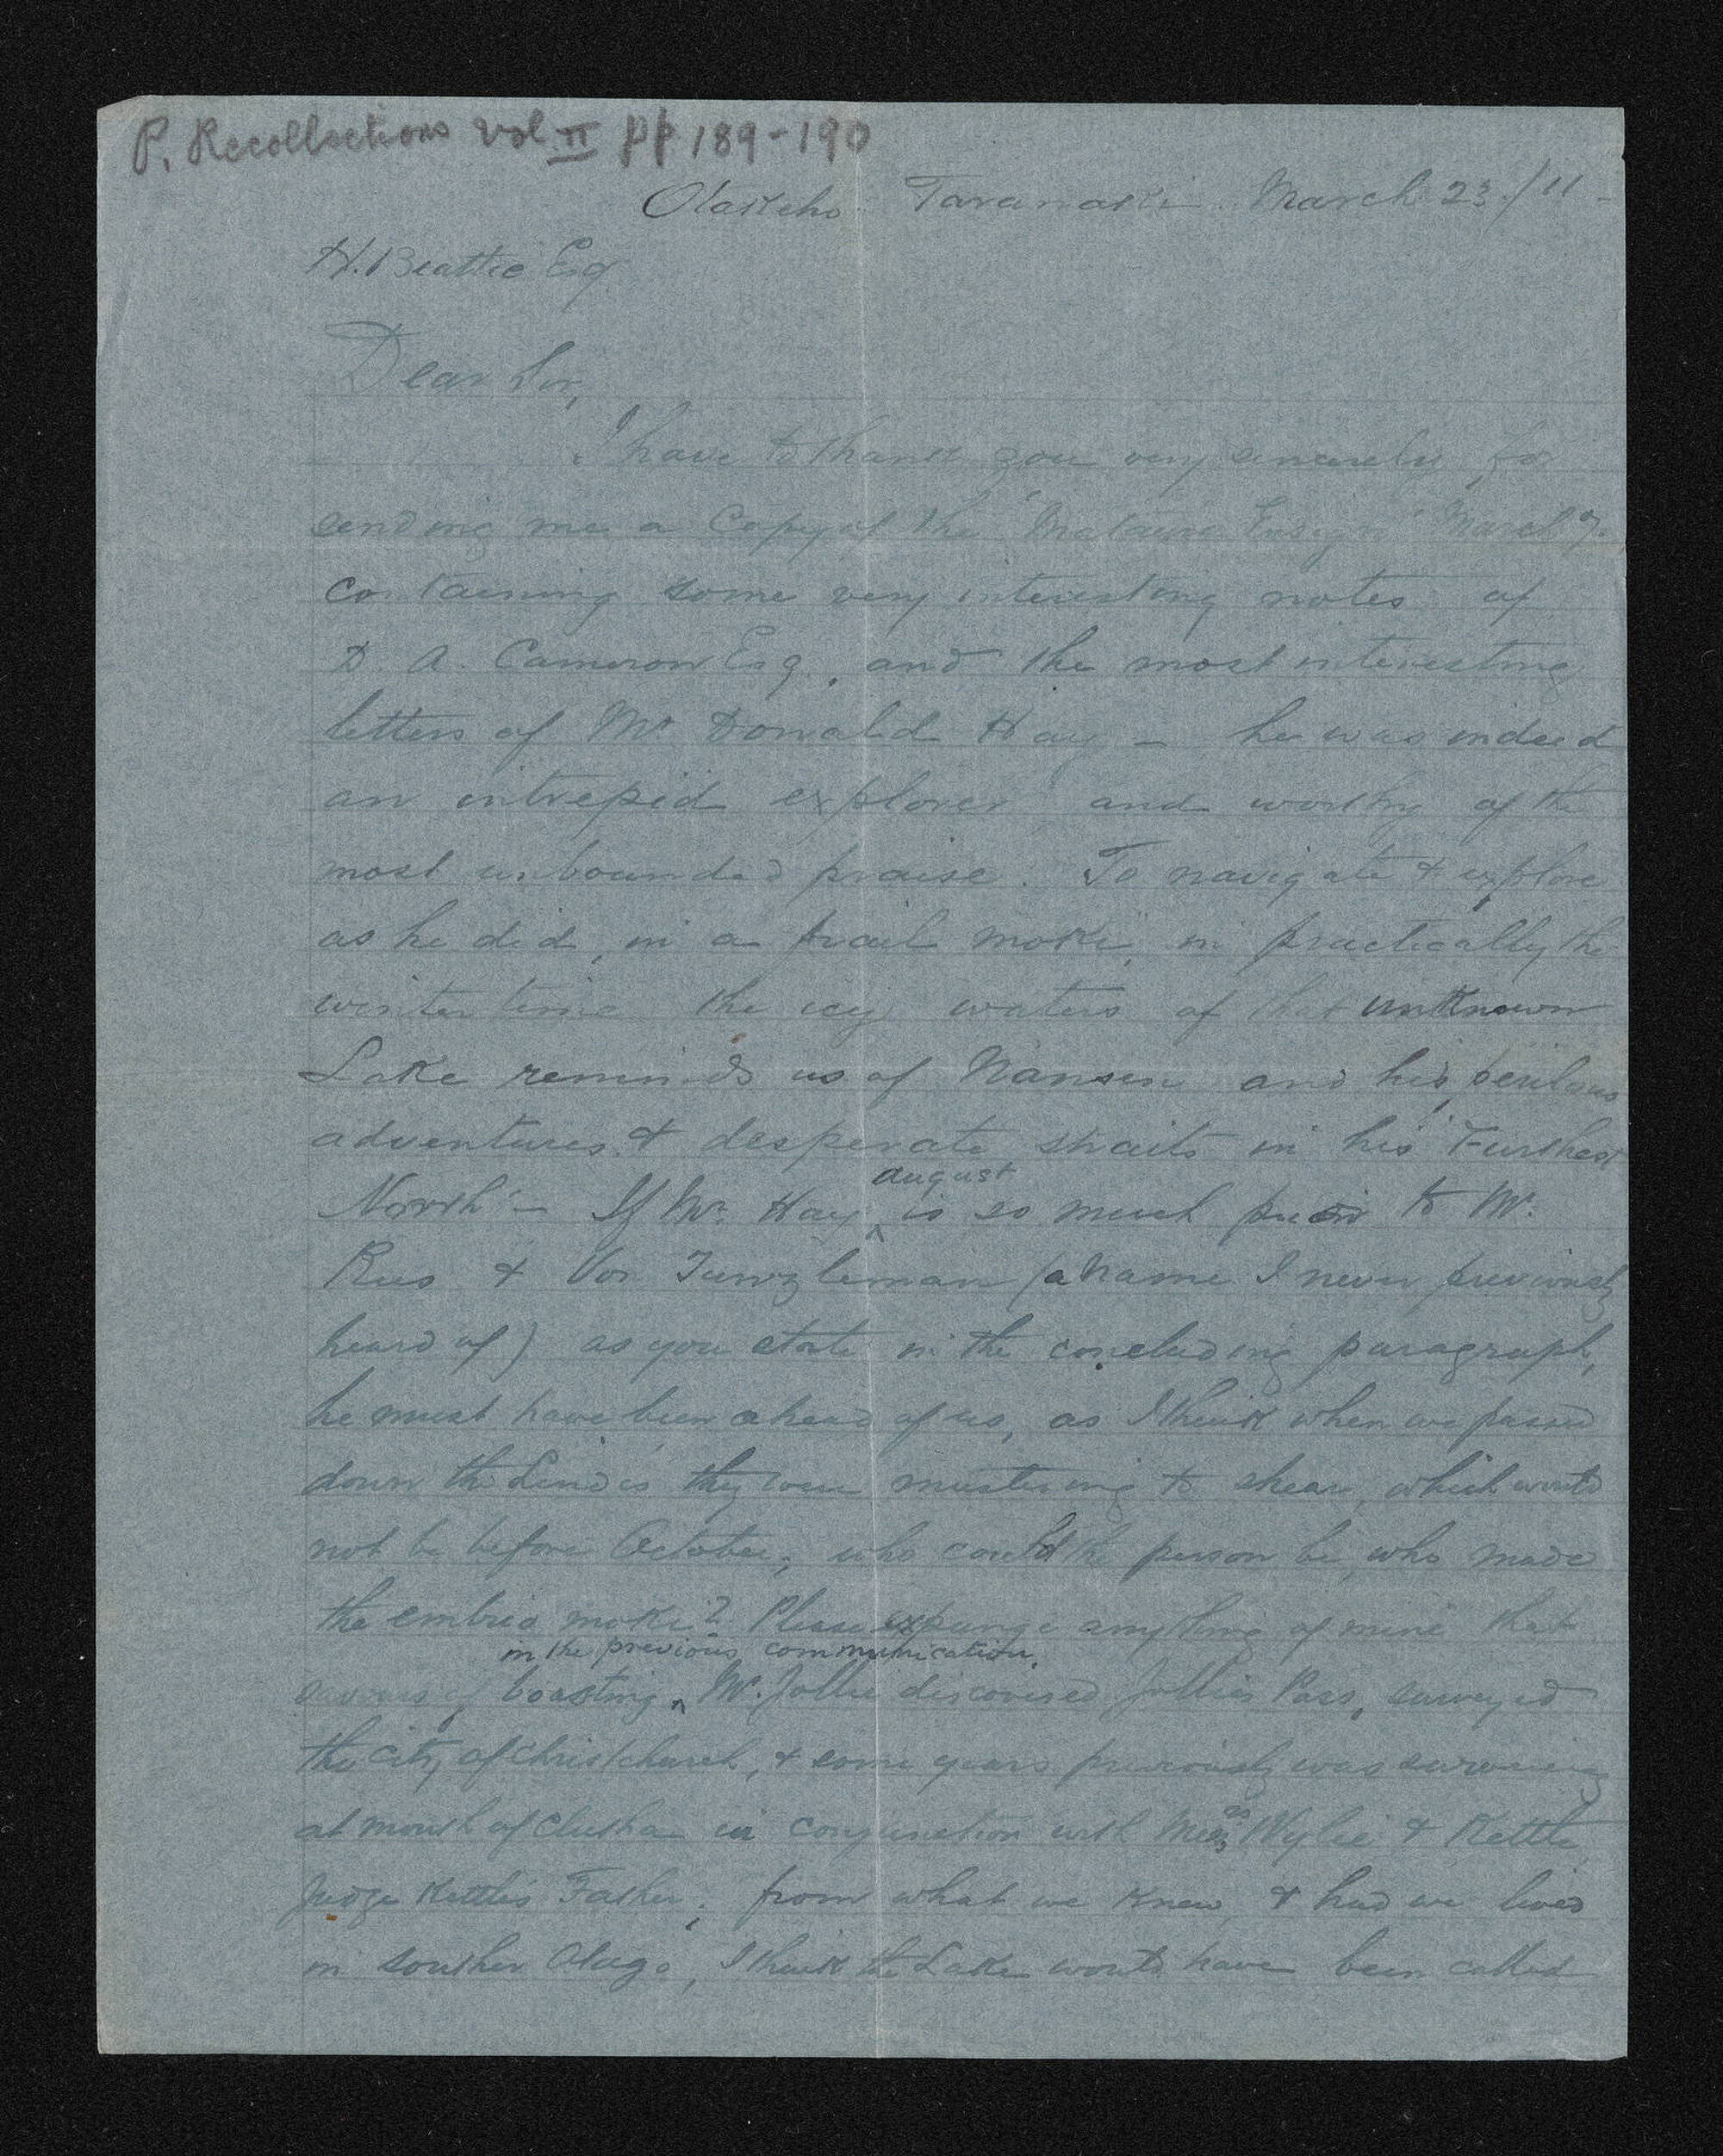 P. Recollections vol II pp 189-190
Otakeho Taranaki March 23/11 -
H. Beattie Esq
Dear Sir,
I have to thank you very sincerely for
sending me a Copy of the 'Mataura Ensign' March 7.
containing some very interesting notes of
D. A. Cameron Esq, and the most interesting
letters of Mr Donald Hay - he was indeed
an intrepid explorer and worthy of the
most unbounded praise. To navigate & explore
as he did, in a frail moki, in practically the
winter time the icy waters of that unknown
Lake reminds us of Nansen and his perilous
adventures & desperate straits in his 'Furthest
North' - If Mr. Hay august is so much prior to Mr.
Rees & Von Tunzleman (a name I never previously
heard of) as you state in the concluding paragraph,
he must have been ahead of us, as I think when we passed
down the Lindis they were mustering to shear, which would
not be before October, who could the person be, who made
the embrio moki? Please expunge anything of mine that
in the previous communication.
savours of boasting. Mr. Jollie discovered Jollies Pass, surveyed
the city of Christchurch, & some years previously was surveying
at mouth of Clutha in conjunction with Messrs Wylie & Kettle
Judge Kettles Father; from what we knew & had we lived
in souther Otago, I think the Lake would have been called